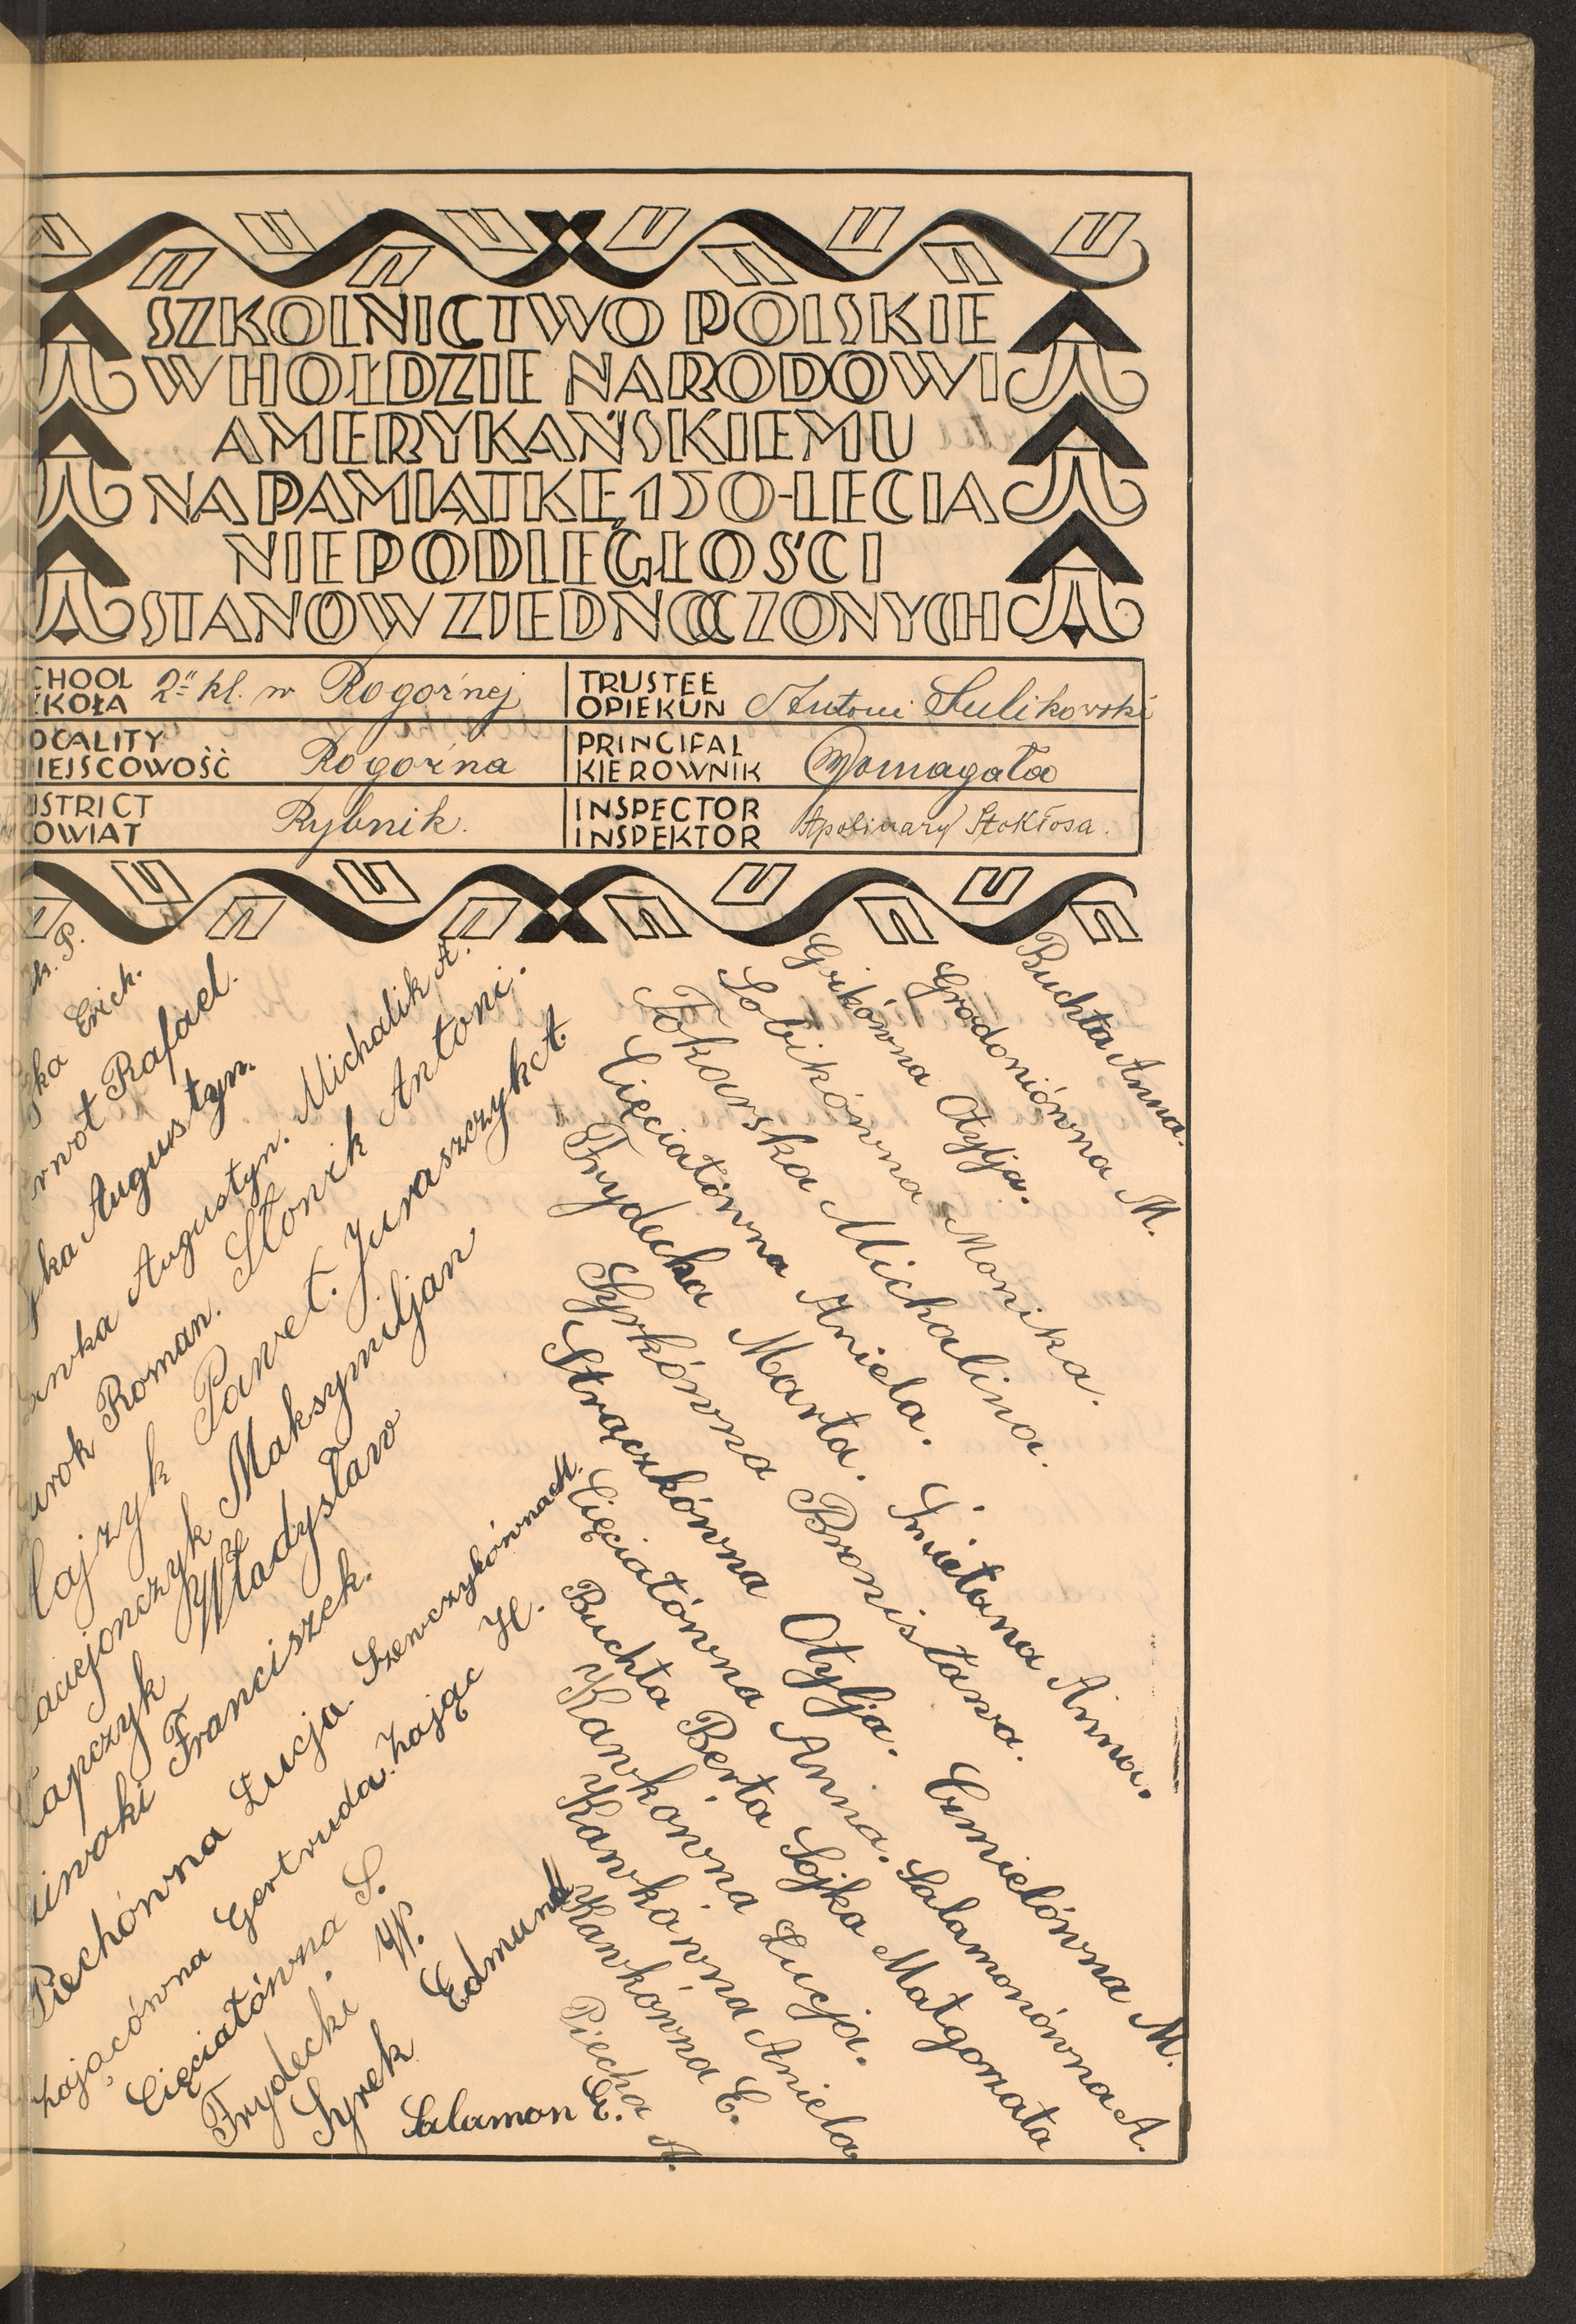 SZKOLNICTWO POLSKIE
W HOŁDZIE NARODOWI
AMERYKAŃSKIEMU
NA PAMIĄTKĘ 150-LECIA
NIEPODLEGŁOŚCI
STANÓW ZJEDNOCZONYCH
CHOOL
KOŁA
2ᵘ kl. w Rogoźnej
TRUSTEE
OPIEKUN
Antoni Sulikowski
OCALITY
IEJSCOWOŚĆ
Rogoźna
PRINCIPAL
KIEROWNIK
Domagała
ISTRICT
OWIAT
Rybnik.
INSPECTOR
INSPEKTOR
Apolinary Stokłosa.
P.
ka Erich.
rwot Rafael.
ka Augustyn.
awka Augustyn. Michalik A.
urok Roman. Słonik Antoni.
ajzyk Paweł. Juraszczyk A.
aciejonczyk Maksymiljan
apczyk Władysław
Franciszek.
Piechówna Łucja. Szewczykówna M.
Zającówna Gertruda. Zając H.
Cięciałówna S.
Frydecki W.
Syrek Edmund
Salamon E.
Buchta Anna.
Grodoniówna M.
Grikówna Otylja.
Sobikówna Monika.
Tokarska Michalina.
Cięciałówna Aniela. Śmietana Anna.
Frydecka Marta.
Syrkówna Bronisława. Cimielówna M.
Strączkówna Otylja.
Cięciałówna Anna. Salamonówna A.
Buchta Berta Sojka Małgorzata
Kawkówna Łucja.
Kawkówna Aniela
Kawkówna E.
Piecha A.